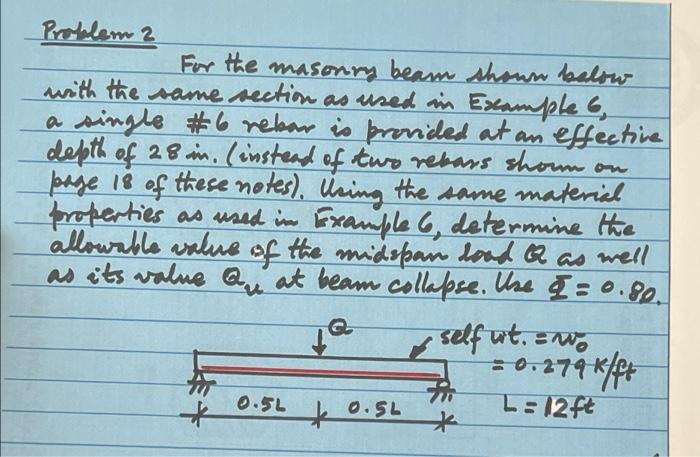 Problem 2
For the masonry beam shown below
with the same section as used in Example 6,
a single #6 rebar is provided at an effective
depth of 28 in. (instead of two rebars shown on
page 18 of these notes). Using the same material
properties as used in Example 6, determine the
allowable value of the midspan load Q as well
as its value Qu at beam collapse. Use Φ = 0.80.
Q
self wt. = w₀
= 0.279 K/ft
0.5L 0.5L L = 12 ft